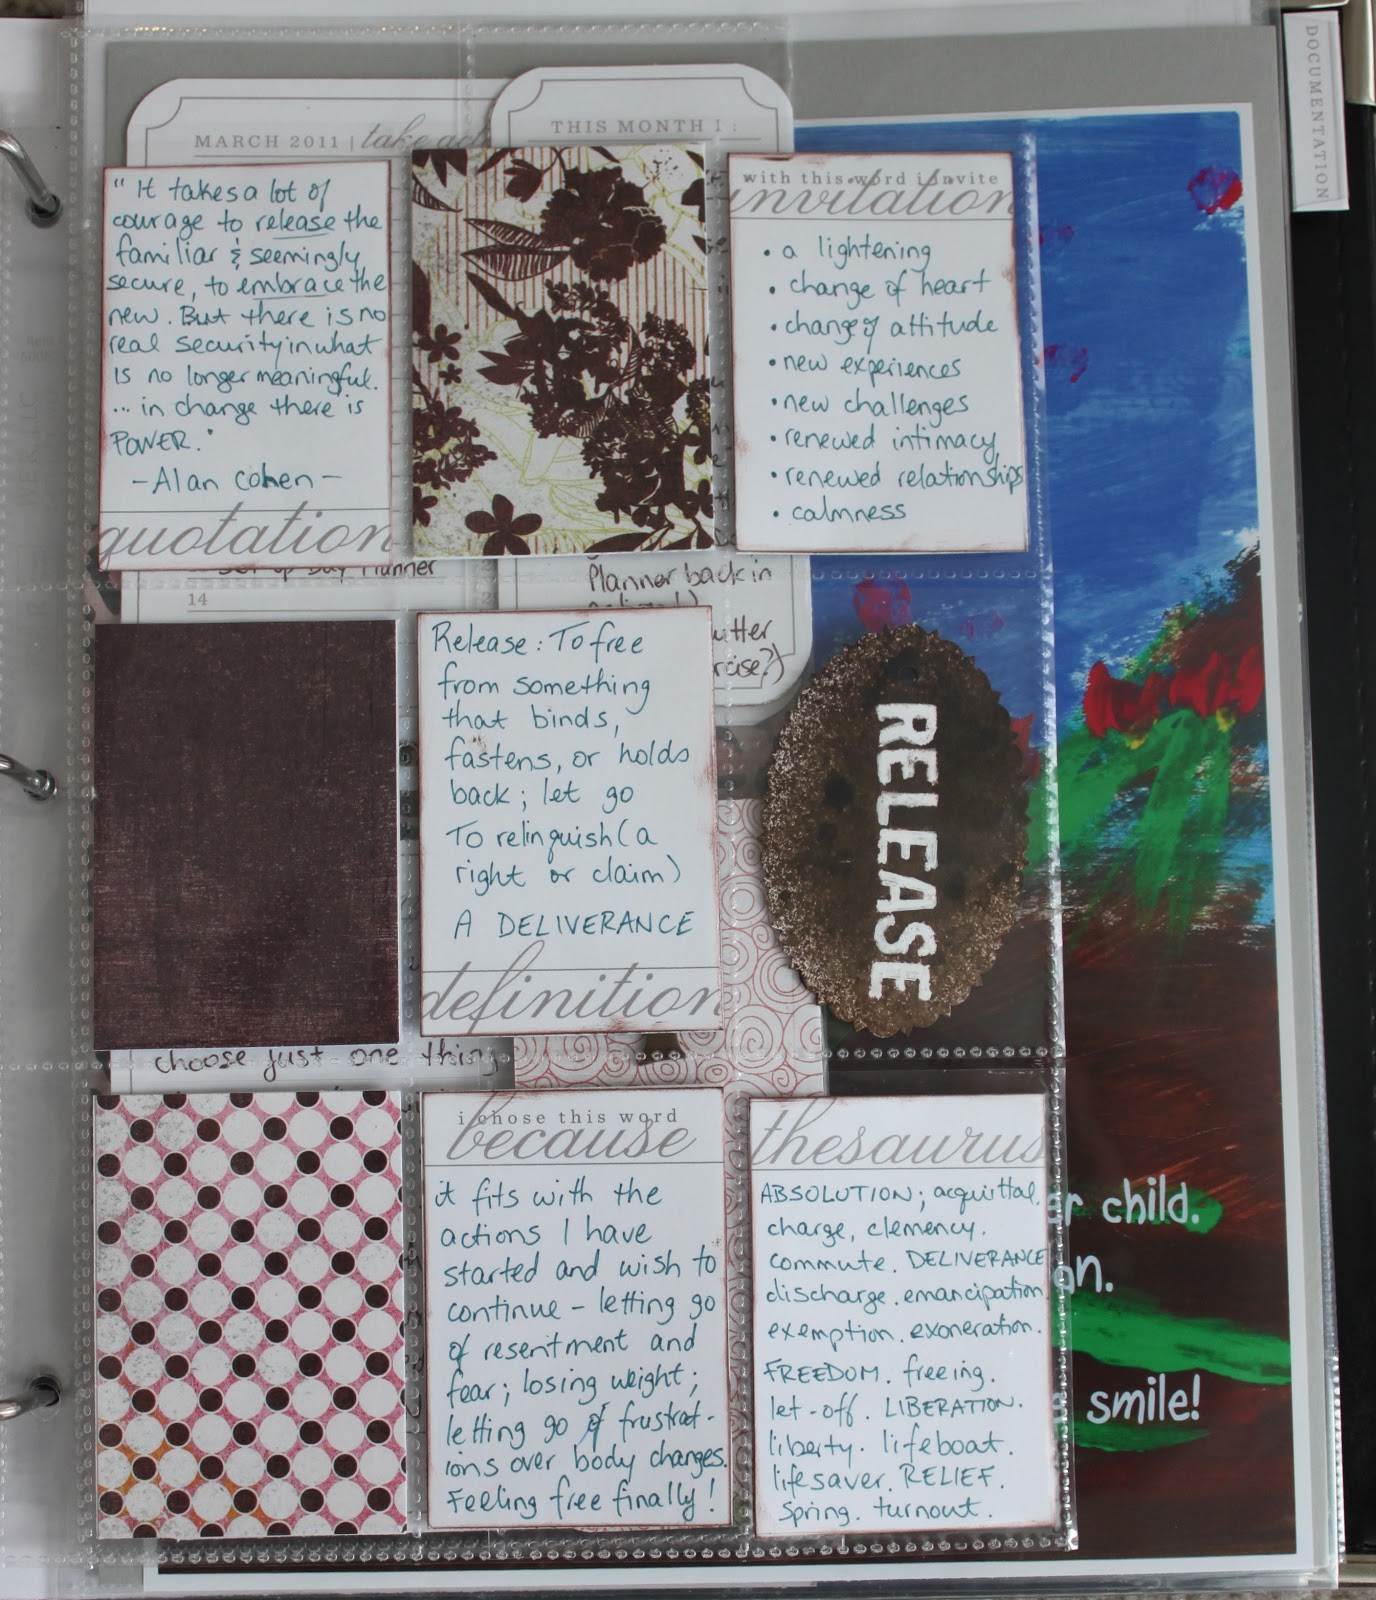 DOCUMENTATION
MARCH 2011 | take
THIS MONTH I :
" It takes a lot of
courage to release the
familiar & seemingly
secure, to embrace the
new. But there is no
real security in what
is no longer meaningful.
... in change there is
POWER."
- Alan Cohen -
quotation
with this word i invite
invitation
• a lightening
• change of heart
• change of attitude
• new experiences
• new challenges
• renewed intimacy
• renewed relationships
• calmness
Set up Day Planner
14
Planner back in
Release : To free
from something
that binds,
fastens, or holds
back ; let go
To relinquish (a
right or claim)
A DELIVERANCE
definition
RELEASE
choose just one thing
i chose this word
because
it fits with the
actions I have
started and wish to
continue - letting go
of resentment and
fear ; losing weight ;
letting go of frustrat-
ions over body changes.
Feeling free finally !
thesaurus
ABSOLUTION ; acquittal.
charge, clemency.
commute. DELIVERANCE
discharge. emancipation
exemption. exoneration.
FREEDOM. freeing.
let-off. LIBERATION.
liberty. lifeboat.
lifesaver. RELIEF.
Spring. turnout.
child.
smile!